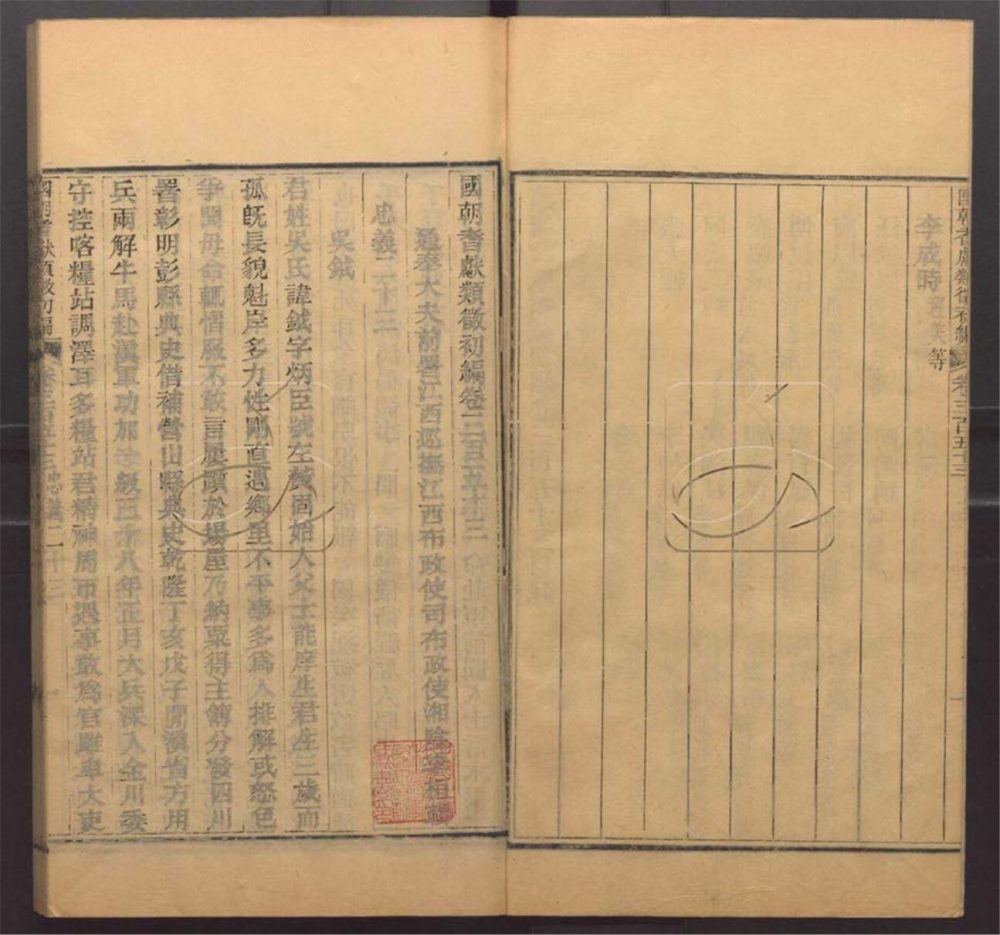 李成時 程美 等
國朝耆獻類徵初編 卷三百五十三
國朝耆獻類徵初編卷三百五十三
通奉大夫前署江西巡撫江西布政使司布政使湘陰李桓輯
忠義二十三
吳鉞
君姓吳氏諱鉞字炳臣號左黄固始人父士能庠生君生三歲而
孤既長貌魁岸多力性剛直遇鄉里不平事多為人排解或怒色
爭鬪母命輒惛服不敢言屢躓於場屋乃納粟得主簿分發四川
署彰明彭縣典史借補營山縣典史乾隆丁亥戊子間滇省方用
兵兩解牛馬赴滇軍功加 級三十八年正月大兵深入金川委
守控喀糧站調澤耳多糧站君精神周帀遇事敢為官雖卑大吏
國朝耆獻類徵初編 卷三百五十三 忠義二十三